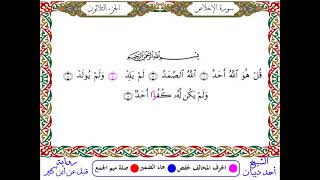 سورة الإخلاص
الجزء الثلاثون
بِسْمِ اللَّهِ الرَّحْمَٰنِ الرَّحِيمِ
قُلْ هُوَ اللَّهُ أَحَدٌ ١ اللَّهُ الصَّمَدُ ٢ لَمْ يَلِدْ ٣ وَلَمْ يُولَدْ ٤
وَلَمْ يَكُن لَّهُ كُفُؤًا أَحَدٌ ٥
الشيخ
أحمد ديبان
صلة ميم الجمع
هاء الضمير
الحرف المخالف لحفص
رواية
قنبل عن ابن كثير